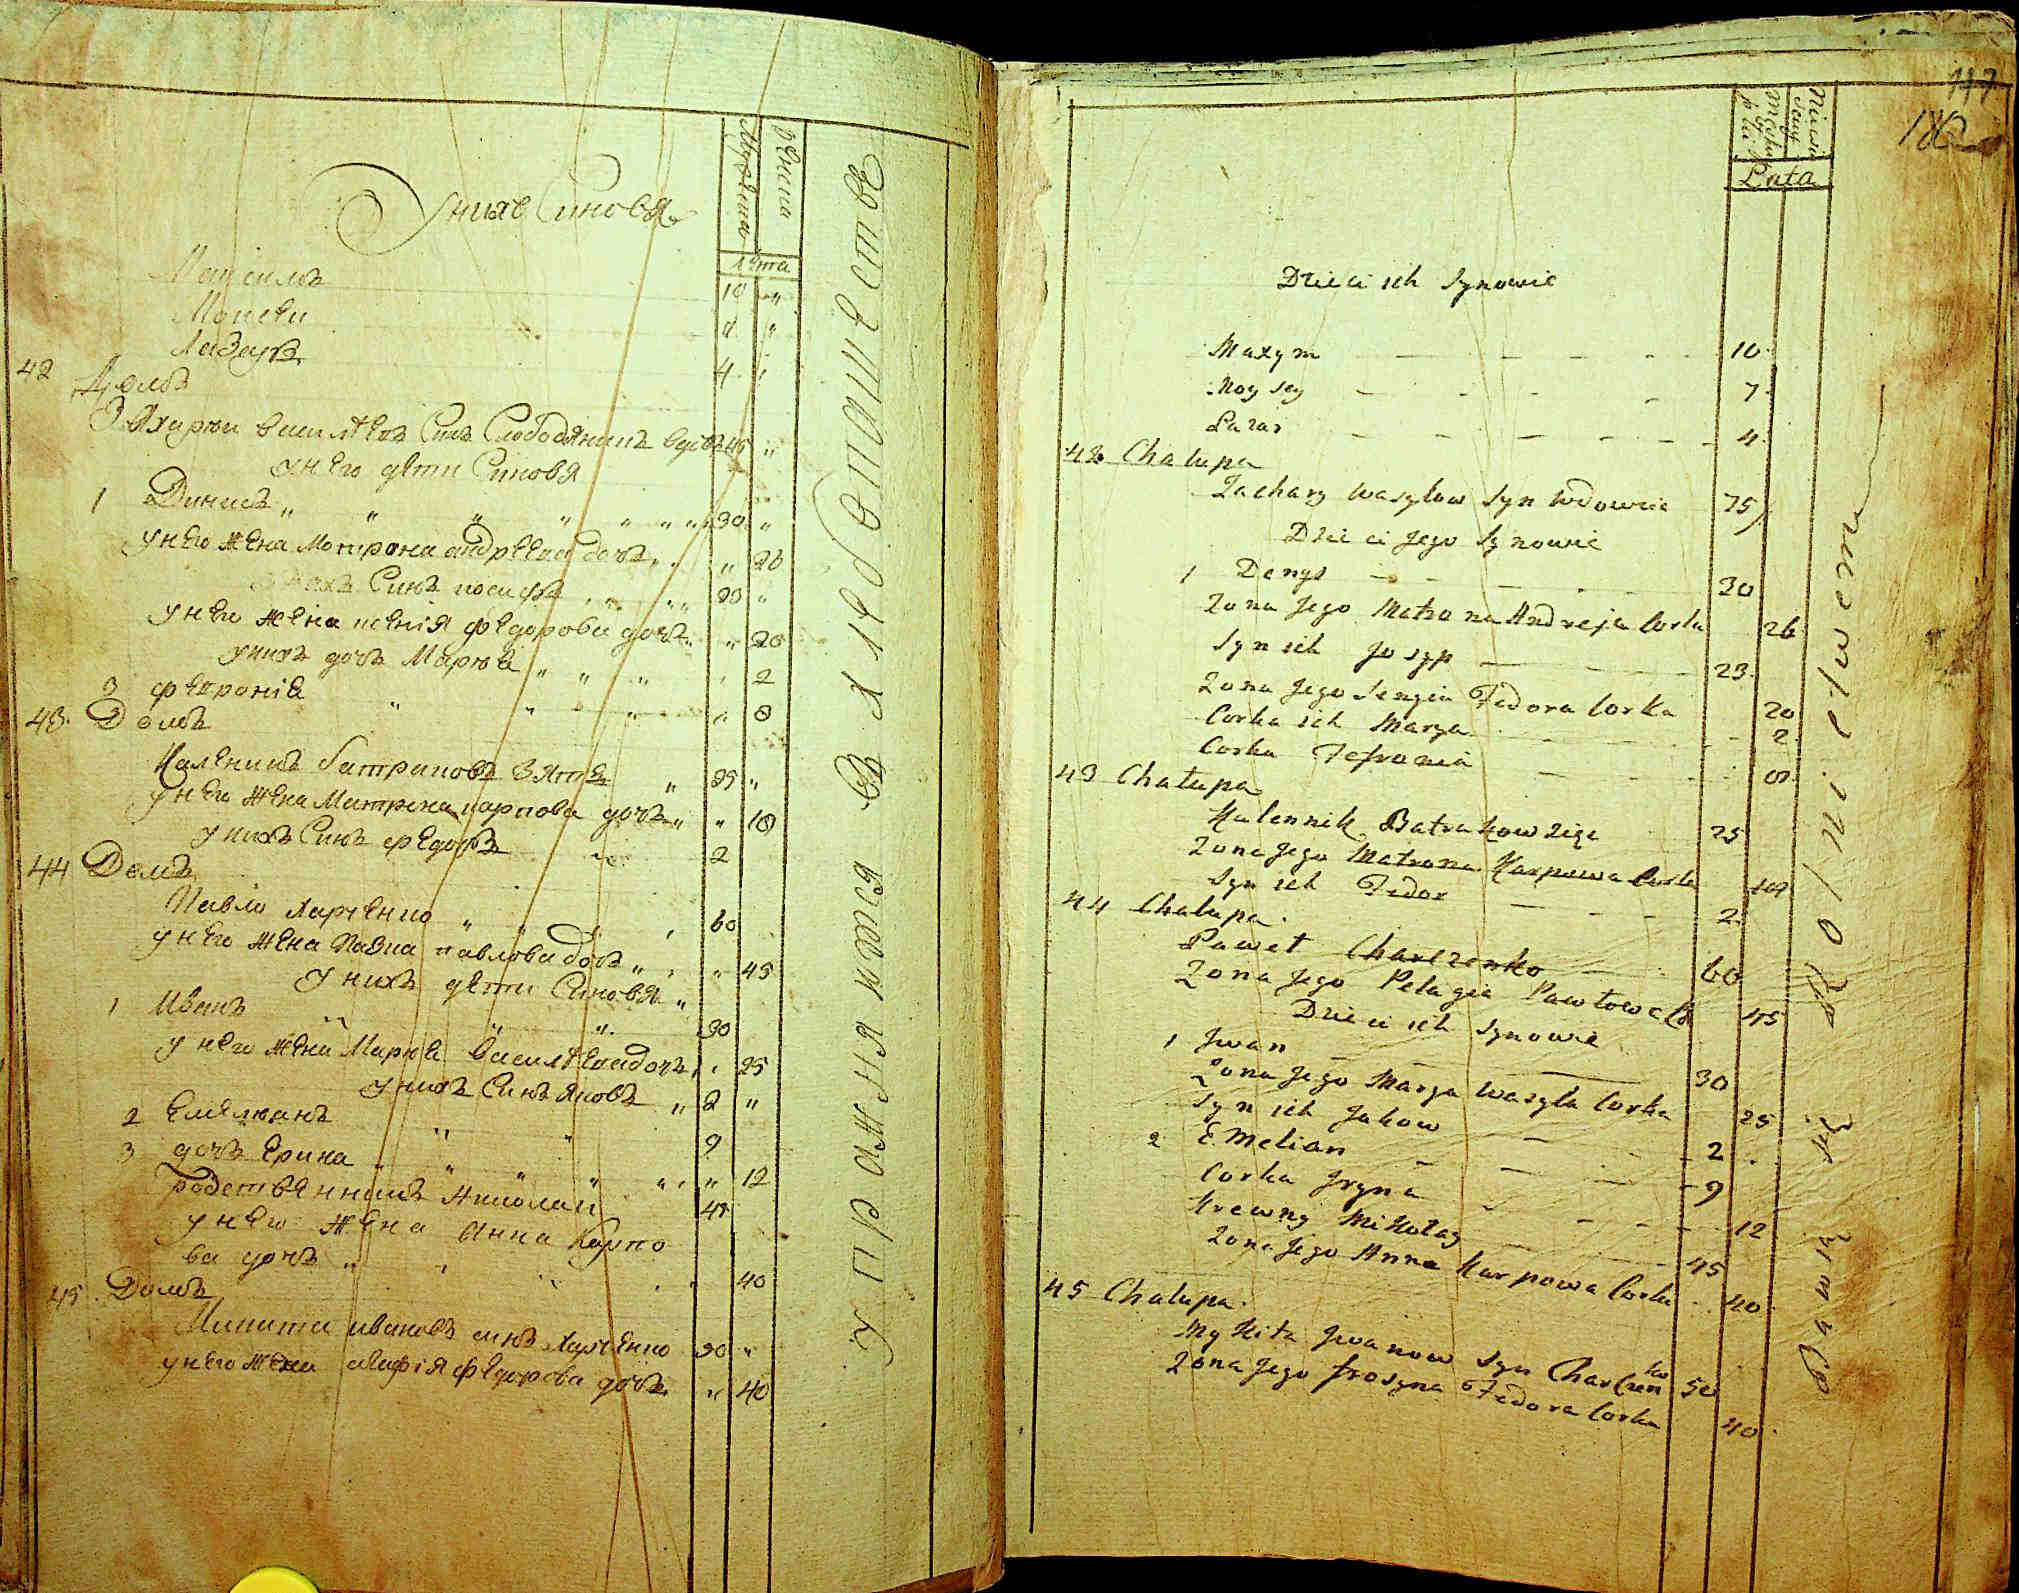 Мужеска
Женска
Лѣта
У нихъ Синовя
Максимъ 10 "
Моисей 7 "
Лазаръ 4
42 Домъ
Захарій василѣвъ Синъ Слободянинъ вдовъ 75 "
у него дѣти Синовя
1 Динисъ " " " " " " 30 "
у него жена Мотрона андрѣева дочъ " " 26
у нихъ Синъ иосифъ " " 23 "
у него жена ксенія федорова дочъ " 20
у нихъ дочъ Маръя " " " 2
3 февронія " " " 8
43 Домъ
Каленикъ батраковъ зятъ " 25 "
у него жена Матрона карпова дочъ " " 19
у нихъ Синъ федоръ 2
44 Домъ
Павло харченко " " 60
у него жена Пазка павлова дочъ " " 45
у нихъ дѣти Синовя "
1 Иванъ " " " 30
у него жена Маръя василѣва дочъ " 25
у нихъ Синъ яковъ " 2 "
2 Емелиянъ " " 9
3 дочъ Ерина " " " " " 12
Родственникъ Николай 45
у него жена Анна Карпо
ва дочъ " " 40
45 Домъ
Микита ивановъ синъ харченко 50 "
у него жена афросинія федорова дочъ " 40
упражняются въ хлебопашестве
117
180
Męska płci
Niewiasty
Lata
Dzieci ich Synowie
Maxym 10
Moysey 7
Lazar 4
42 Chalupa
Zachary Wasylow Syn Wdowiec 75
Dzieci Jego Synowie
1 Denys 30
Zona Jego Matrona Andreja Corka 26
Syn ich Josyp 23
Zona Jego Xengia Fedora Corka 20
Corka ich Marya 2
Corka Fefronia 8
43 Chalupa
Kalennik Batrakow zięć 25
Zona Jego Matrona Karpowa Corka 19
Syn ich Fedor 2
44 Chalupa
Paweł Charczenko 60
Zona Jego Pelagia Pawłowa C 45
Dzieci ich Synowie
1 Jwan 30
Zona Jego Marya Wasyla Corka 25
Syn ich Jakow 2
2 Emelian 9
Corka Jryna 12
Krewny Mikołay 45
Zona Jego Anna Karpowa Corka 40
45 Chalupa
Mykita Jwanow Syn Charczenko 50
Zona Jego Frosyna Fedora Corka 40
Bawią się Rolnictwem